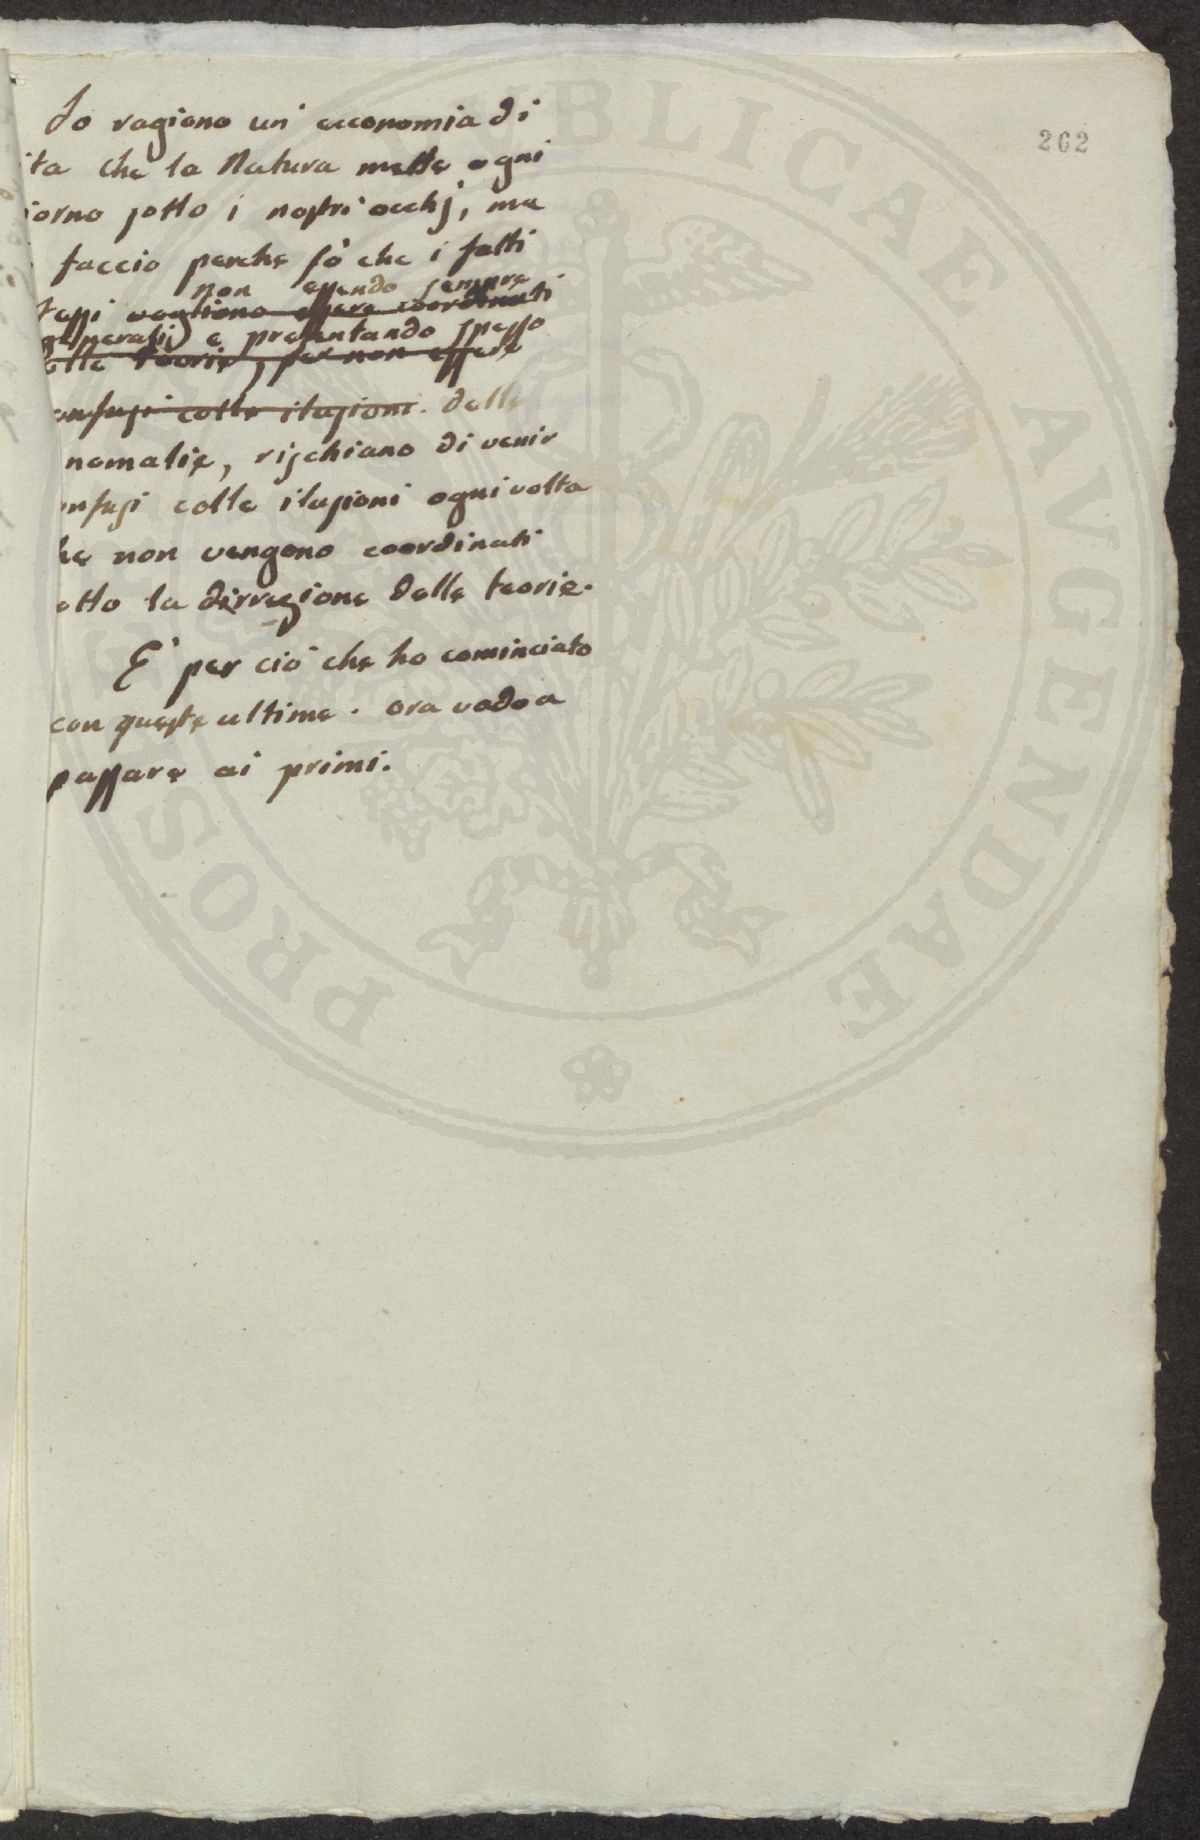 262
Io ragiono un' economia di
ita che la Natura mette ogni
iorno sotto i nostri occhj, ma
faccio perche sò che i fatti
non essendo sempre
tessi vogliono essere coordinati
generali, e presentando spesso
alle teorie, per non essere
onfusi colle ilusioni. delle
nomalie, rischiano di venir
onfusi colle ilusioni ogni volta
he non vengono coordinati
otto la dirrezione delle teorie.
E' per ciò che ho cominciato
con queste ultime. ora vado a
passare ai primi.
PROSPE
BLICAE AVGENDAE